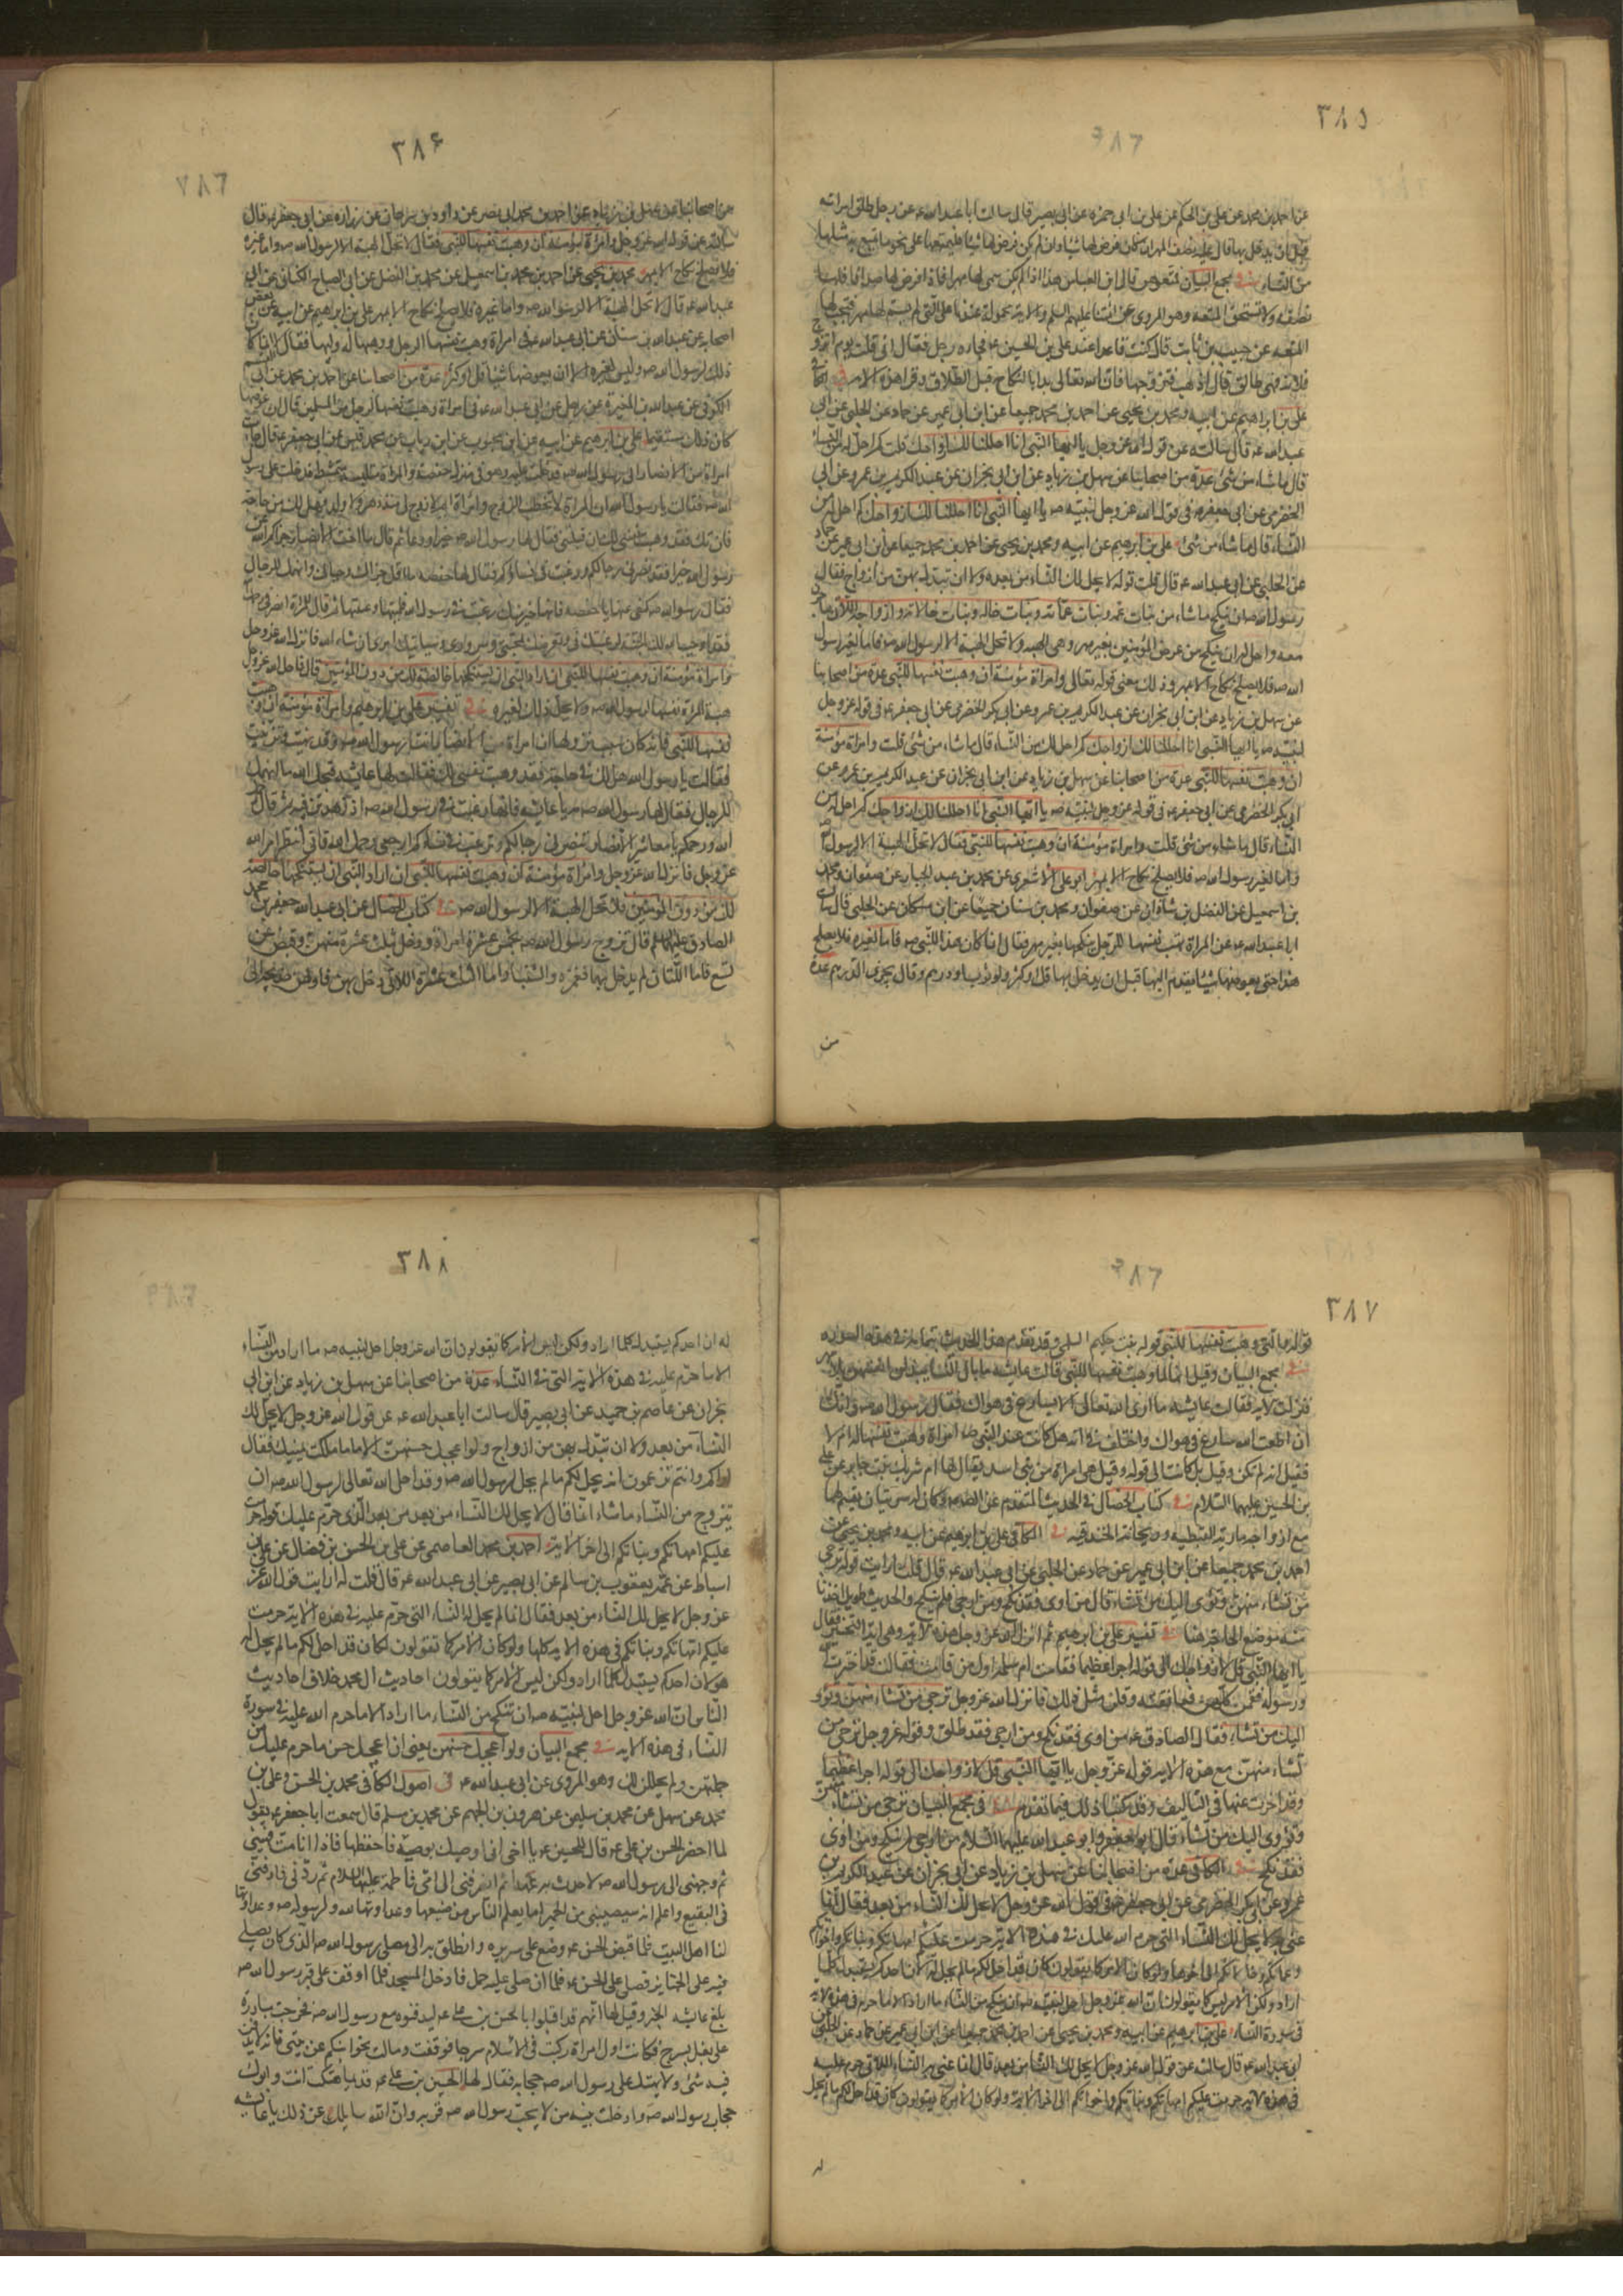 ٣٨٥
عن احمد بن محمد عن علي بن الحكم عن علي بن ابي حمزه عن ابي بصير قال سالت ابا عبد الله عه عن رجل طلق امراته
قبل ان يدخل بها قال عليه نصف المهر ان كان فرض لها شيئا وان لم يكن فرض لها شيئا فليمتعها على نحو ما تمتع به مثلها
من النساء في مجمع البيان فمتعوهن قال ابن العباس هذا اذا لم يكن سمى لها مهرا فاذا فرض لها صداقا فلها
نصفه ولا تستحق المتعه وهو المروى عن ائمتنا عليهم السلم والايه محمولة عندنا على التي لم يسم لها مهر فيجب لها
المتعه عن حبيب بن ثابت قال كنت قاعدا عند علي بن الحسين عه فجاءه رجل فقال اني قلت يوم اتزوج
فلانة فهي طالق قال اذهب فتزوجها فان الله تعالى بدا بالنكاح قبل الطلاق وقرا هذه الايه في الكافي
علي بن ابراهيم عن ابيه ومحمد بن يحيى عن احمد بن محمد جميعا عن ابن ابي عمير عن حماد عن الحلبي عن ابي
عبد الله عه قال سالته عن قول الله عز وجل يا ايها النبي انا احللنا لك ازواجك قلت كم احل له من النساء
قال ما شاء من شئ عدة من اصحابنا عن سهل بن زياد عن ابن ابي نجران عن عبد الكريم بن عمرو عن ابي
الحضرمي عن ابي جعفر عه في قول الله عز وجل لنبيه صه يا ايها النبي انا احللنا لك ازواجك كم احل له من
النساء قال ما شاء من شئ علي بن ابراهيم عن ابيه ومحمد بن يحيى عن احمد بن محمد جميعا عن ابن ابي عمير عن حماد
عن الحلبي عن ابي عبد الله عه قال قلت قوله لا يحل لك النساء من بعد ولا ان تبدل بهن من ازواج فقال
رسول الله صه ان ينكح ما شاء من بنات عمه وبنات عماته وبنات خاله وبنات خالاته وازواجه اللاتي هاجرن
معه واحل له ان ينكح من عرض المؤمنين بغير مهر وهي الهبه ولا تحل الهبة الا لرسول الله صه فاما لغير رسول
الله صه فلا يصلح نكاح الا بمهر وذلك معنى قوله تعالى وامراة مؤمنة ان وهبت نفسها للنبي عدة من اصحابنا
عن سهل بن زياد عن ابن ابي نجران عن عبد الكريم بن عمرو عن ابي بكر الحضرمي عن ابي جعفر عه في قول الله عز وجل
لنبيه صه يا ايها النبي انا احللنا لك ازواجك كم احل له من النساء قال ما شاء من شئ قلت وامراة مؤمنة
ان وهبت نفسها للنبي عدة من اصحابنا عن سهل بن زياد عن ابن ابي نجران عن عبد الكريم بن عمرو عن
ابي بكر الحضرمي عن ابي جعفر عه في قوله عز وجل لنبيه صه يا ايها النبي انا احللنا لك ازواجك كم احل له من
النساء قال ما شاء من شئ قلت وامراة مؤمنة ان وهبت نفسها للنبي فقال لا تحل الهبة الا لرسول الله
واما لغير رسول الله صه فلا يصلح نكاح الا بمهر ابو علي الاشعري عن محمد بن عبد الجبار عن صفوان ومحمد
بن اسمعيل عن الفضل بن شاذان عن صفوان ومحمد بن سنان جميعا عن ابن مسكان عن الحلبي قال سالت
ابا عبد الله عه عن المراة تهب نفسها للرجل ينكحها بغير مهر فقال انما كان هذا للنبي صه فاما لغيره فلا يصلح
هذا حتى يعوضها شيئا يقدم اليها قبل ان يدخل بها قل او كثر ولو ثوب او درهم وقال يجزى الدرهم عدة
من
٣٨۶
من اصحابنا عن سهل بن زياد عن احمد بن محمد ابي نصر عن داود بن سرحان عن زراره عن ابي جعفر عه قال
سالته عن قول الله عز وجل وامراة مؤمنة ان وهبت نفسها للنبي فقال لا تحل الهبة الا لرسول الله صه واما غيره
فلا يصلح نكاح الا بمهر محمد بن يحيى عن احمد بن محمد عن محمد بن اسمعيل عن محمد بن الفضل عن ابي الصباح الكناني عن ابي
عبد الله عه قال لا تحل الهبة الا لرسول الله صه واما غيره فلا يصلح نكاح الا بمهر علي بن ابراهيم عن ابيه عن بعض
اصحابه عن عبد الله بن سنان عن ابي عبد الله عه في امراة وهبت نفسها لرجل ووهبها له وليها فقال لا انما كان
ذلك لرسول الله صه وليس لغيره الا ان يعوضها شيئا قل او كثر عدة من اصحابنا عن احمد بن محمد عن ابي
الكوفي عن عبد الله بن المغيرة عن رجل عن ابي عبد الله عه في امراة وهبت نفسها لرجل من المسلمين قال ان عوضها
كان ذلك مستقيما علي بن ابراهيم عن ابيه عن ابن محبوب عن ابن رياب عن محمد قيس عن ابي جعفر عه قال جاءت
امراة من الانصار الى رسول الله صه فدخلت عليه وهو في منزل حفصه والمراة متلبسة متمشطه فدخلت على رسول
الله صه فقالت يا رسول الله ان المراة لا تخطب الزوج وانا امراة ايم لا زوج لي منذ دهر ولا ولد فهل لك من حاجه
فان تك فقد وهبت نفسي لك ان قبلتني فقال لها رسول الله صه خيرا ودعا لها ثم قال يا اخت الانصار جزاكم الله عن
رسول الله خيرا فقد نصرني رجالكم ورغبت في نساؤكم فقالت لها حفصه ما اقل حياءك واجراك وانهمك للرجال
فقال رسول الله صه كفى عنها يا حفصه فانها خير منك رغبت في رسول الله فلمتها وعيبتها ثم قال للمراة انصرفي رحمك
الله فقد اوجب الله لك الجنة لرغبتك في وتعرضك لمحبتي وسروري وسياتيك امري ان شاء الله فانزل الله عز وجل
وامراة مؤمنة ان وهبت نفسها للنبي ان اراد النبي ان يستنكحها خالصة لك من دون المؤمنين قال فاحل الله عز وجل
هبة المراة نفسها لرسول الله صه ولا يحل ذلك لغيره في تفسير علي بن ابراهيم وامراة مؤمنة ان وهبت
نفسها للنبي فانه كان سبب نزولها ان امراة من الانصار اتت رسول الله صه وقد تهيات وتزينت
فقالت يا رسول الله هل لك في حاجة فقد وهبت نفسي لك فقالت لها عايشه قبحك الله ما انهمك
للرجال فقال لها رسول الله صه مه يا عايشه فانها رغبت في رسول الله صه اذ زهدتن فيه ثم قال رحمك
الله ورحمكم يا معاشر الانصار نصرني رجالكم ورغبت في نساؤكم ارجعي رحمك الله فاني انتظر امر الله
عز وجل فانزل الله عز وجل وامراة مؤمنة ان وهبت نفسها للنبي ان اراد النبي ان يستنكحها خالصة
لك من دون المؤمنين فلا تحل الهبة الا لرسول الله صه في كتاب الخصال عن ابي عبد الله جعفر بن محمد
الصادق عليهما السلم قال تزوج رسول الله صه بخمس عشرة امراة ودخل بثلث عشرة منهن وقبض عن
تسع فاما اللتان لم يدخل بهما فعمرة والشنباء واما الثلث عشرة اللاتي دخل بهن فاولهن خديجه الى
٣٨٧
قوله والتي وهبت نفسها للنبي خوله بنت حكيم السلمي وقد تقدم هذا الحديث بتمامه في هذه السورة
في مجمع البيان وقيل انها لما وهبت نفسها للنبي قالت عايشه ما بال النساء يبذلن انفسهن بلا مهر
فنزلت الايه فقالت عايشه ما ارى الله تعالى الا يسارع في هواك فقال رسول الله صه وانك
ان اطعت الله سارع في هواك واختلف في انه هل كانت عند النبي صه امراة وهبت نفسها له ام لا
فقيل انه لم تكن وقيل بل كانت الى قوله وقيل هي امراة من بني اسد يقال لها ام شريك بنت جابر عن علي
بن الحسين عليهما السلام في كتاب الخصال في الحديث المتقدم عن الصادق وكان له سريتان يقسم لهما
مع ازواجه مارية القبطيه وريحانه الخندفيه في الكافي علي بن ابراهيم عن ابيه ومحمد بن يحيى عن
احمد بن محمد جميعا عن ابن ابي عمير عن حماد عن الحلبي عن ابي عبد الله عه قال قلت ارايت قوله ترجى
من تشاء منهن وتؤوى اليك من تشاء قال من اوى فقد نكح ومن ارجى فلم ينكح والحديث طويل اخذنا
منه موضع الحاجه هنا في تفسير علي بن ابراهيم ثم انزل الله عز وجل هذه الايه وهي اية التخيير فقال
يا ايها النبي قل لازواجك الى قوله اجرا عظيما فقامت ام سلمه اول من قامت فقالت قد اخترت الله
ورسوله فقمن كلهن فعانقنه وقلن مثل ذلك فانزل الله عز وجل ترجى من تشاء منهن وتؤوى
اليك من تشاء فقال الصادق عه من اوى فقد نكح ومن ارجى فقد طلق وقوله عز وجل ترجى من
تشاء منهن مع هذه الايه قوله عز وجل يا ايها النبي قل لازواجك الى قوله اجرا عظيما
وقد اخرت عنها في التاليف وقد كتبنا ذلك فيما تقدم في مجمع البيان ترجى من تشاء منهن
وتؤوى اليك من تشاء قال ابو جعفر وابو عبد الله عليهما السلام من ارجى لم ينكح ومن اوى
فقد نكح في الكافي عدة من اصحابنا عن سهل بن زياد عن ابن ابي نجران عن عبد الكريم بن
عمرو عن ابي بكر الحضرمي عن ابي جعفر عه في قول الله عز وجل لا يحل لك النساء من بعد فقال انما
عنى به لا يحل لك النساء التي حرم الله عليك في هذه الايه حرمت عليكم امهاتكم وبناتكم واخواتكم
وعماتكم وخالاتكم الى اخرها ولو كان الامر كما يقولون كان قد احل لكم ما لم يحل له لان احدكم يستبدل كلما
اراد ولكن الامر ليس كما يقولون ان الله عز وجل احل لنبيه صه ان ينكح من النساء ما اراد الا ما حرم في هذه الايه
في سورة النساء علي بن ابراهيم عن ابيه ومحمد بن يحيى عن احمد بن محمد جميعا عن ابن ابي عمير عن حماد عن الحلبي عن
ابي عبد الله عه قال سالته عن قول الله عز وجل لا يحل لك النساء من بعد قال انما عنى به النساء اللاتي حرم عليه
في هذه الايه حرمت عليكم امهاتكم وبناتكم واخواتكم الى اخر الايه ولو كان الامر كما يقولون كان قد احل لكم ما لم يحل
له
٣٨٨
له ان احدكم يستبدل كلما اراد ولكن ليس الامر كما يقولون ان الله عز وجل احل لنبيه صه ما اراد من النساء
الا ما حرم عليه في هذه الاية التي في النساء عدة من اصحابنا عن سهل بن زياد عن ابن ابي
نجران عن عاصم بن حميد عن ابي بصير قال سالت ابا عبد الله عه عن قول الله عز وجل لا يحل لك
النساء من بعد ولا ان تبدل بهن من ازواج ولو اعجبك حسنهن الا ما ملكت يمينك فقال
اراكم وانتم تزعمون انه يحل لكم ما لم يحل لرسول الله صه وقد احل الله تعالى لرسول الله صه ان
يتزوج من النساء ما شاء انما قال لا يحل لك النساء من بعد من بعد الذي حرم عليك قوله حرمت
عليكم امهاتكم وبناتكم الى اخر الاية احمد بن محمد العاصمي عن علي بن الحسن بن فضال عن علي بن
اسباط عن عمه يعقوب بن سالم عن ابي بصير عن ابي عبد الله عه قال قلت له ارايت قول الله
عز وجل لا يحل لك النساء من بعد فقال انما لم يحل له النساء التي حرم عليه في هذه الاية حرمت
عليكم امهاتكم وبناتكم في هذه الايه كلها ولو كان الامر كما تقولون لكان قد احل لكم ما لم يحل له
هو لان احدكم يستبدل كلما اراد ولكن ليس الامر كما يقولون احاديث ال محمد خلاف احاديث
الناس ان الله عز وجل احل لنبيه صه ان ينكح من النساء ما اراد الا ما حرم الله عليه في سورة
النساء في هذه الايه في مجمع البيان ولو اعجبك حسنهن يعنى ان اعجبك حسن ما حرم عليك من
جملتهن ولم يحللن لك وهو المروى عن ابي عبد الله عه في اصول الكافي محمد بن الحسن وعلي بن
محمد عن سهل عن محمد بن سليمن عن هرون بن الجهم عن محمد بن مسلم قال سمعت ابا جعفر عه يقول
لما احضر الحسن بن علي عه قال للحسين عه يا اخى انى اوصيك بوصية فاحفظها فاذا انا مت فهيئني
ثم وجهنى الى رسول الله صه لاحدث به عهدا ثم اصرفنى الى امى فاطمة عليها السلام ثم ردنى فادفنى
في البقيع واعلم انه سيصيبني من الحميرا ما يعلم الناس من صنيعها وعداوتها لله ولرسوله صه وعداوتها
لنا اهل البيت فلما قبض الحسن عه وضع على سريره وانطلق به الى مصلى رسول الله صه الذي كان يصلى
فيه على الجنايز فصلى على الحسن عه فلما ان صلى عليه حمل فادخل المسجد فلما اوقف على قبر رسول الله صه
بلغ عايشه الخبر وقيل لها انهم قد اقبلوا بالحسن بن علي عه ليدفنوه مع رسول الله صه فخرجت مبادرة
على بغل بسرج فكانت اول امراة ركبت في الاسلام سرجا فوقفت وقالت نحوا ابنكم عن بيتى فانه لا يدفن
فيه شئ ولا يهتك على رسول الله صه حجابه فقال لها الحسين بن علي عه قديما هتكت انت وابوك
حجاب رسول الله صه وادخلت بيته من لا يحب رسول الله صه قربه وان الله سايلك عن ذلك يا عايشه